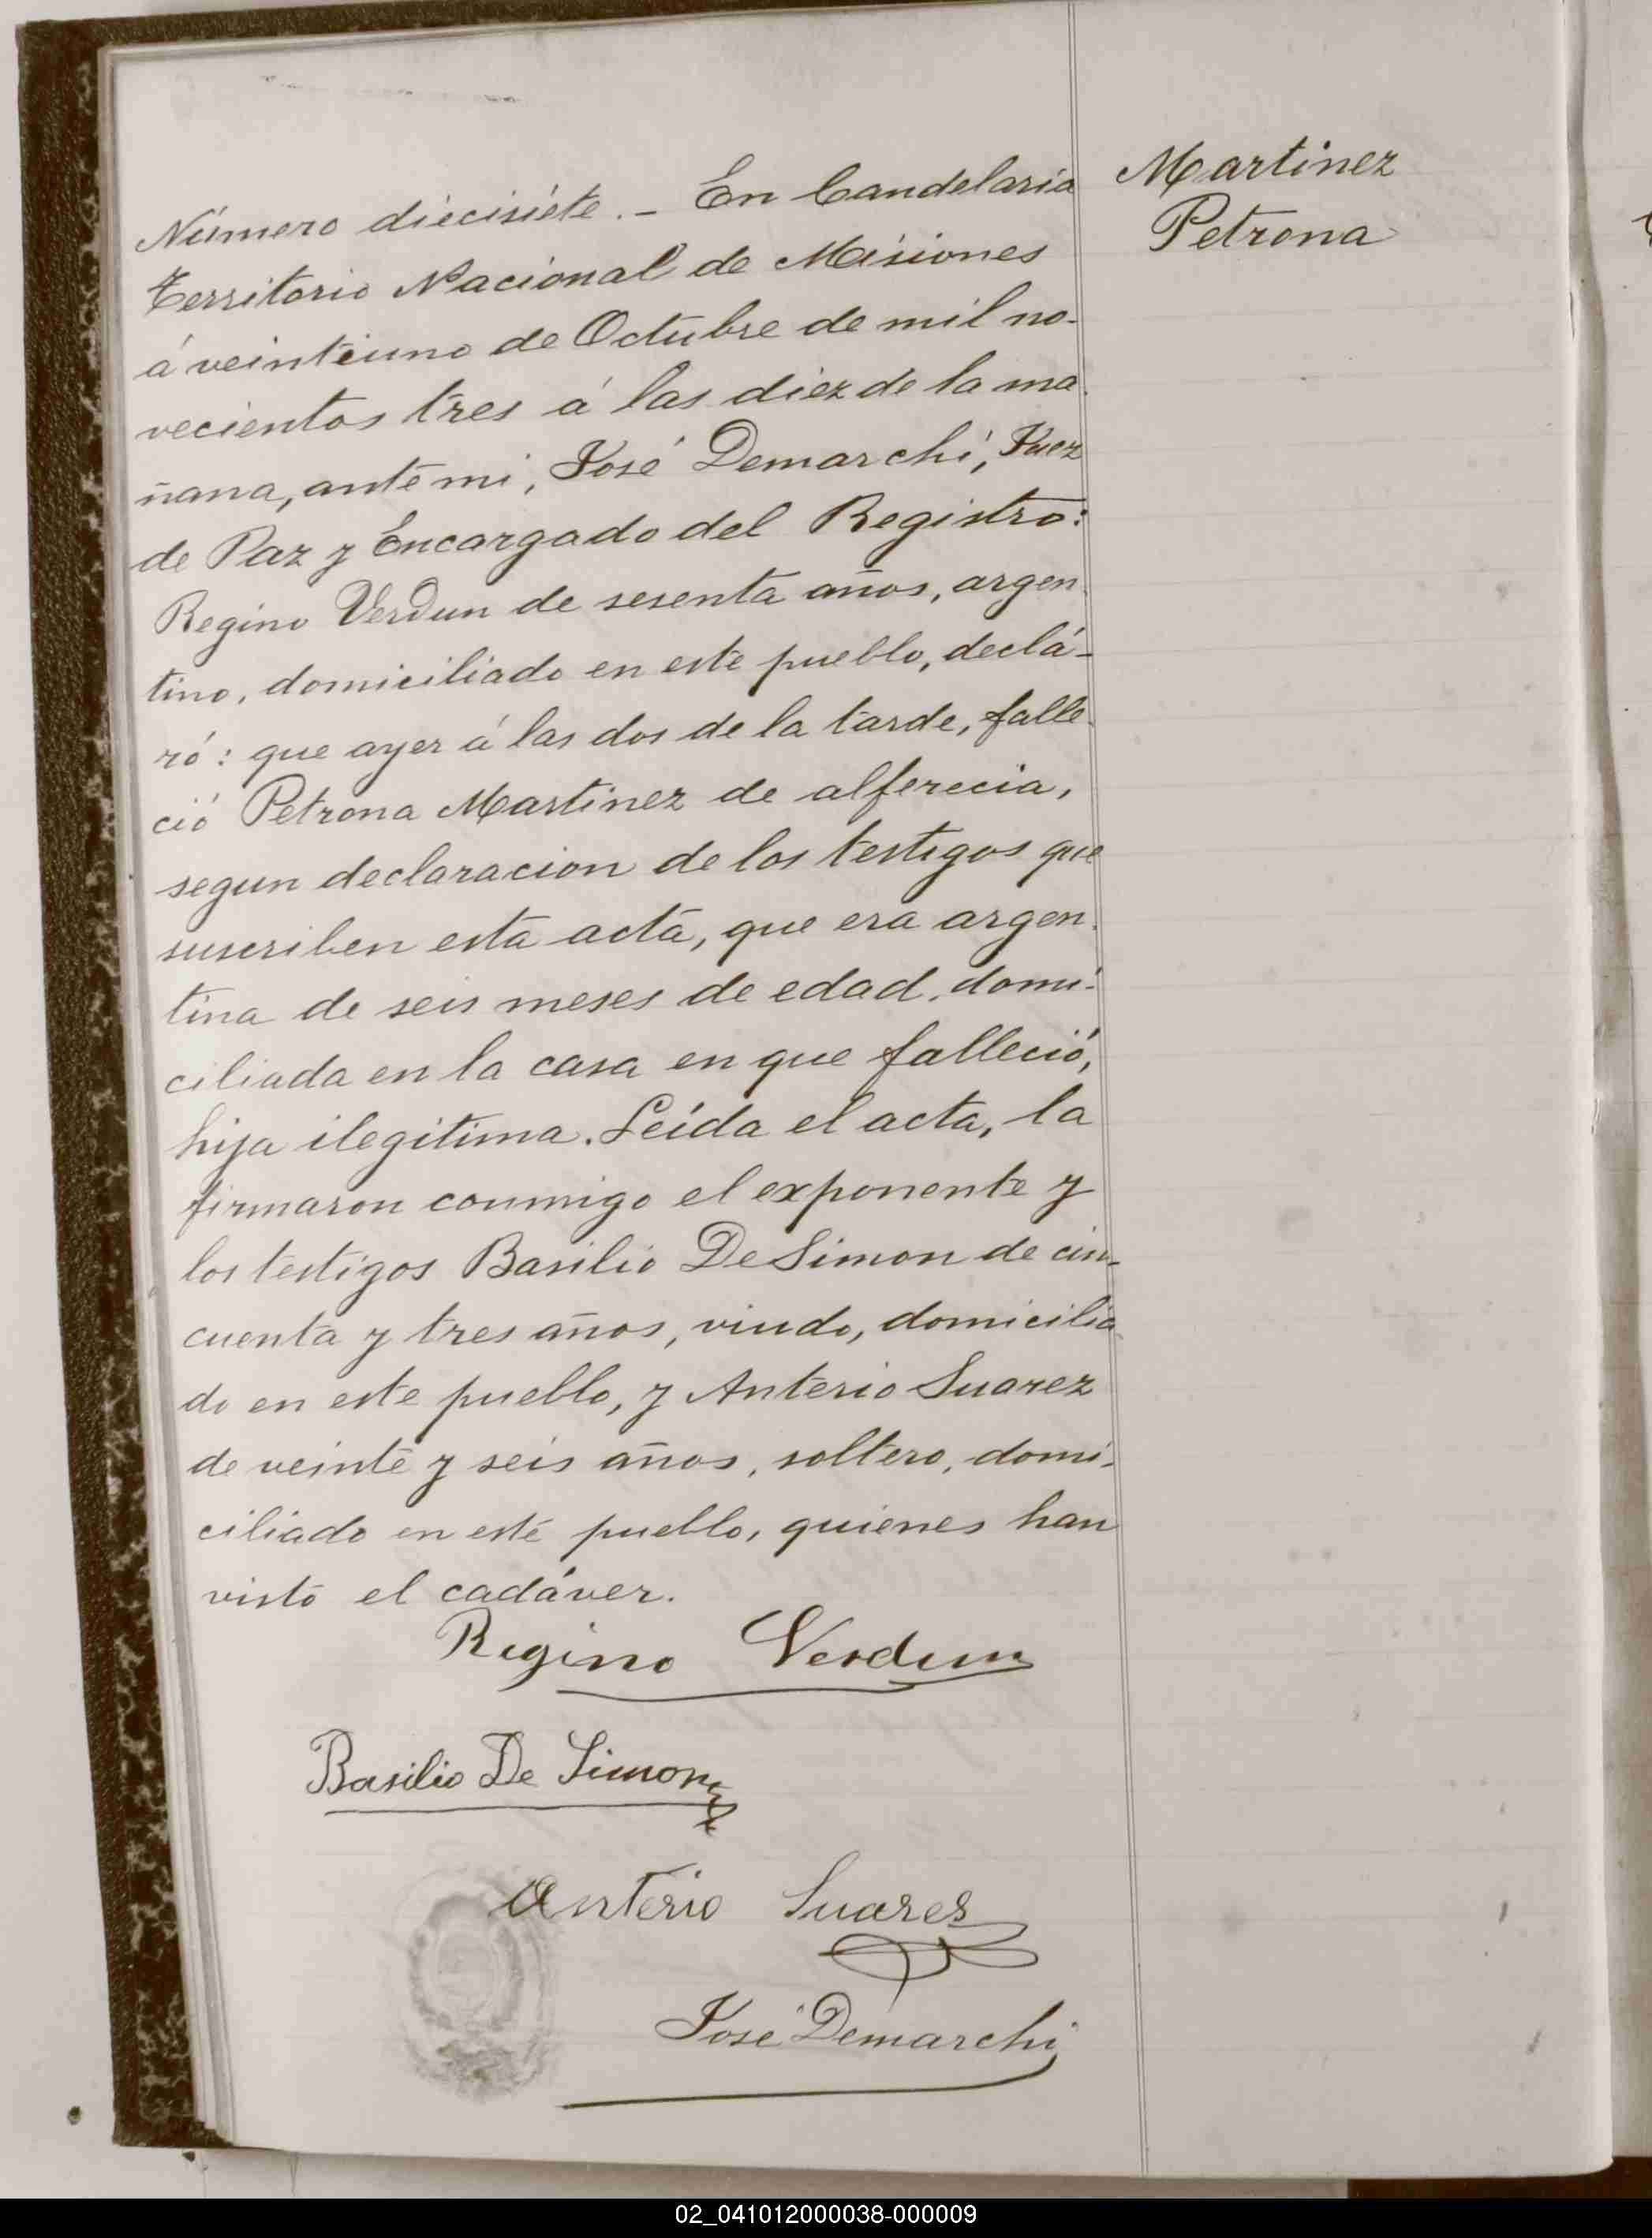 Martinez
Petrona
Número diecisiete.- En Candelaria
Territorio Nacional de Misiones
á veintiuno de Octubre de mil no-
vecientos tres á las diez de la ma
ñana, ante mi, José Demarchi, Juez
de Paz y Encargado del Registro:
Regino Verdun de sesenta años, argen
tino, domiciliado en este pueblo, declá-
ró: que ayer á las dos de la tarde, falle
ció Petrona Martinez de alferecia,
segun declaracion de los testigos que
suscriben esta acta, que era argen
tina de seis meses de edad, domi-
ciliada en la casa en que falleció,
hija ilegitima. Leída el acta, la
firmaron conmigo el exponente y
los testigos Basilio De Simon de cin-
cuenta y tres años, viudo, domicilia
do en este pueblo, y Anterio Suarez
de veinte y seis años, soltero, domi-
ciliado en este pueblo, quienes han
visto el cadáver.
Regino Verdun
Basilio De Simon
Anterio Suares
José Demarchi
02_041012000038-000009